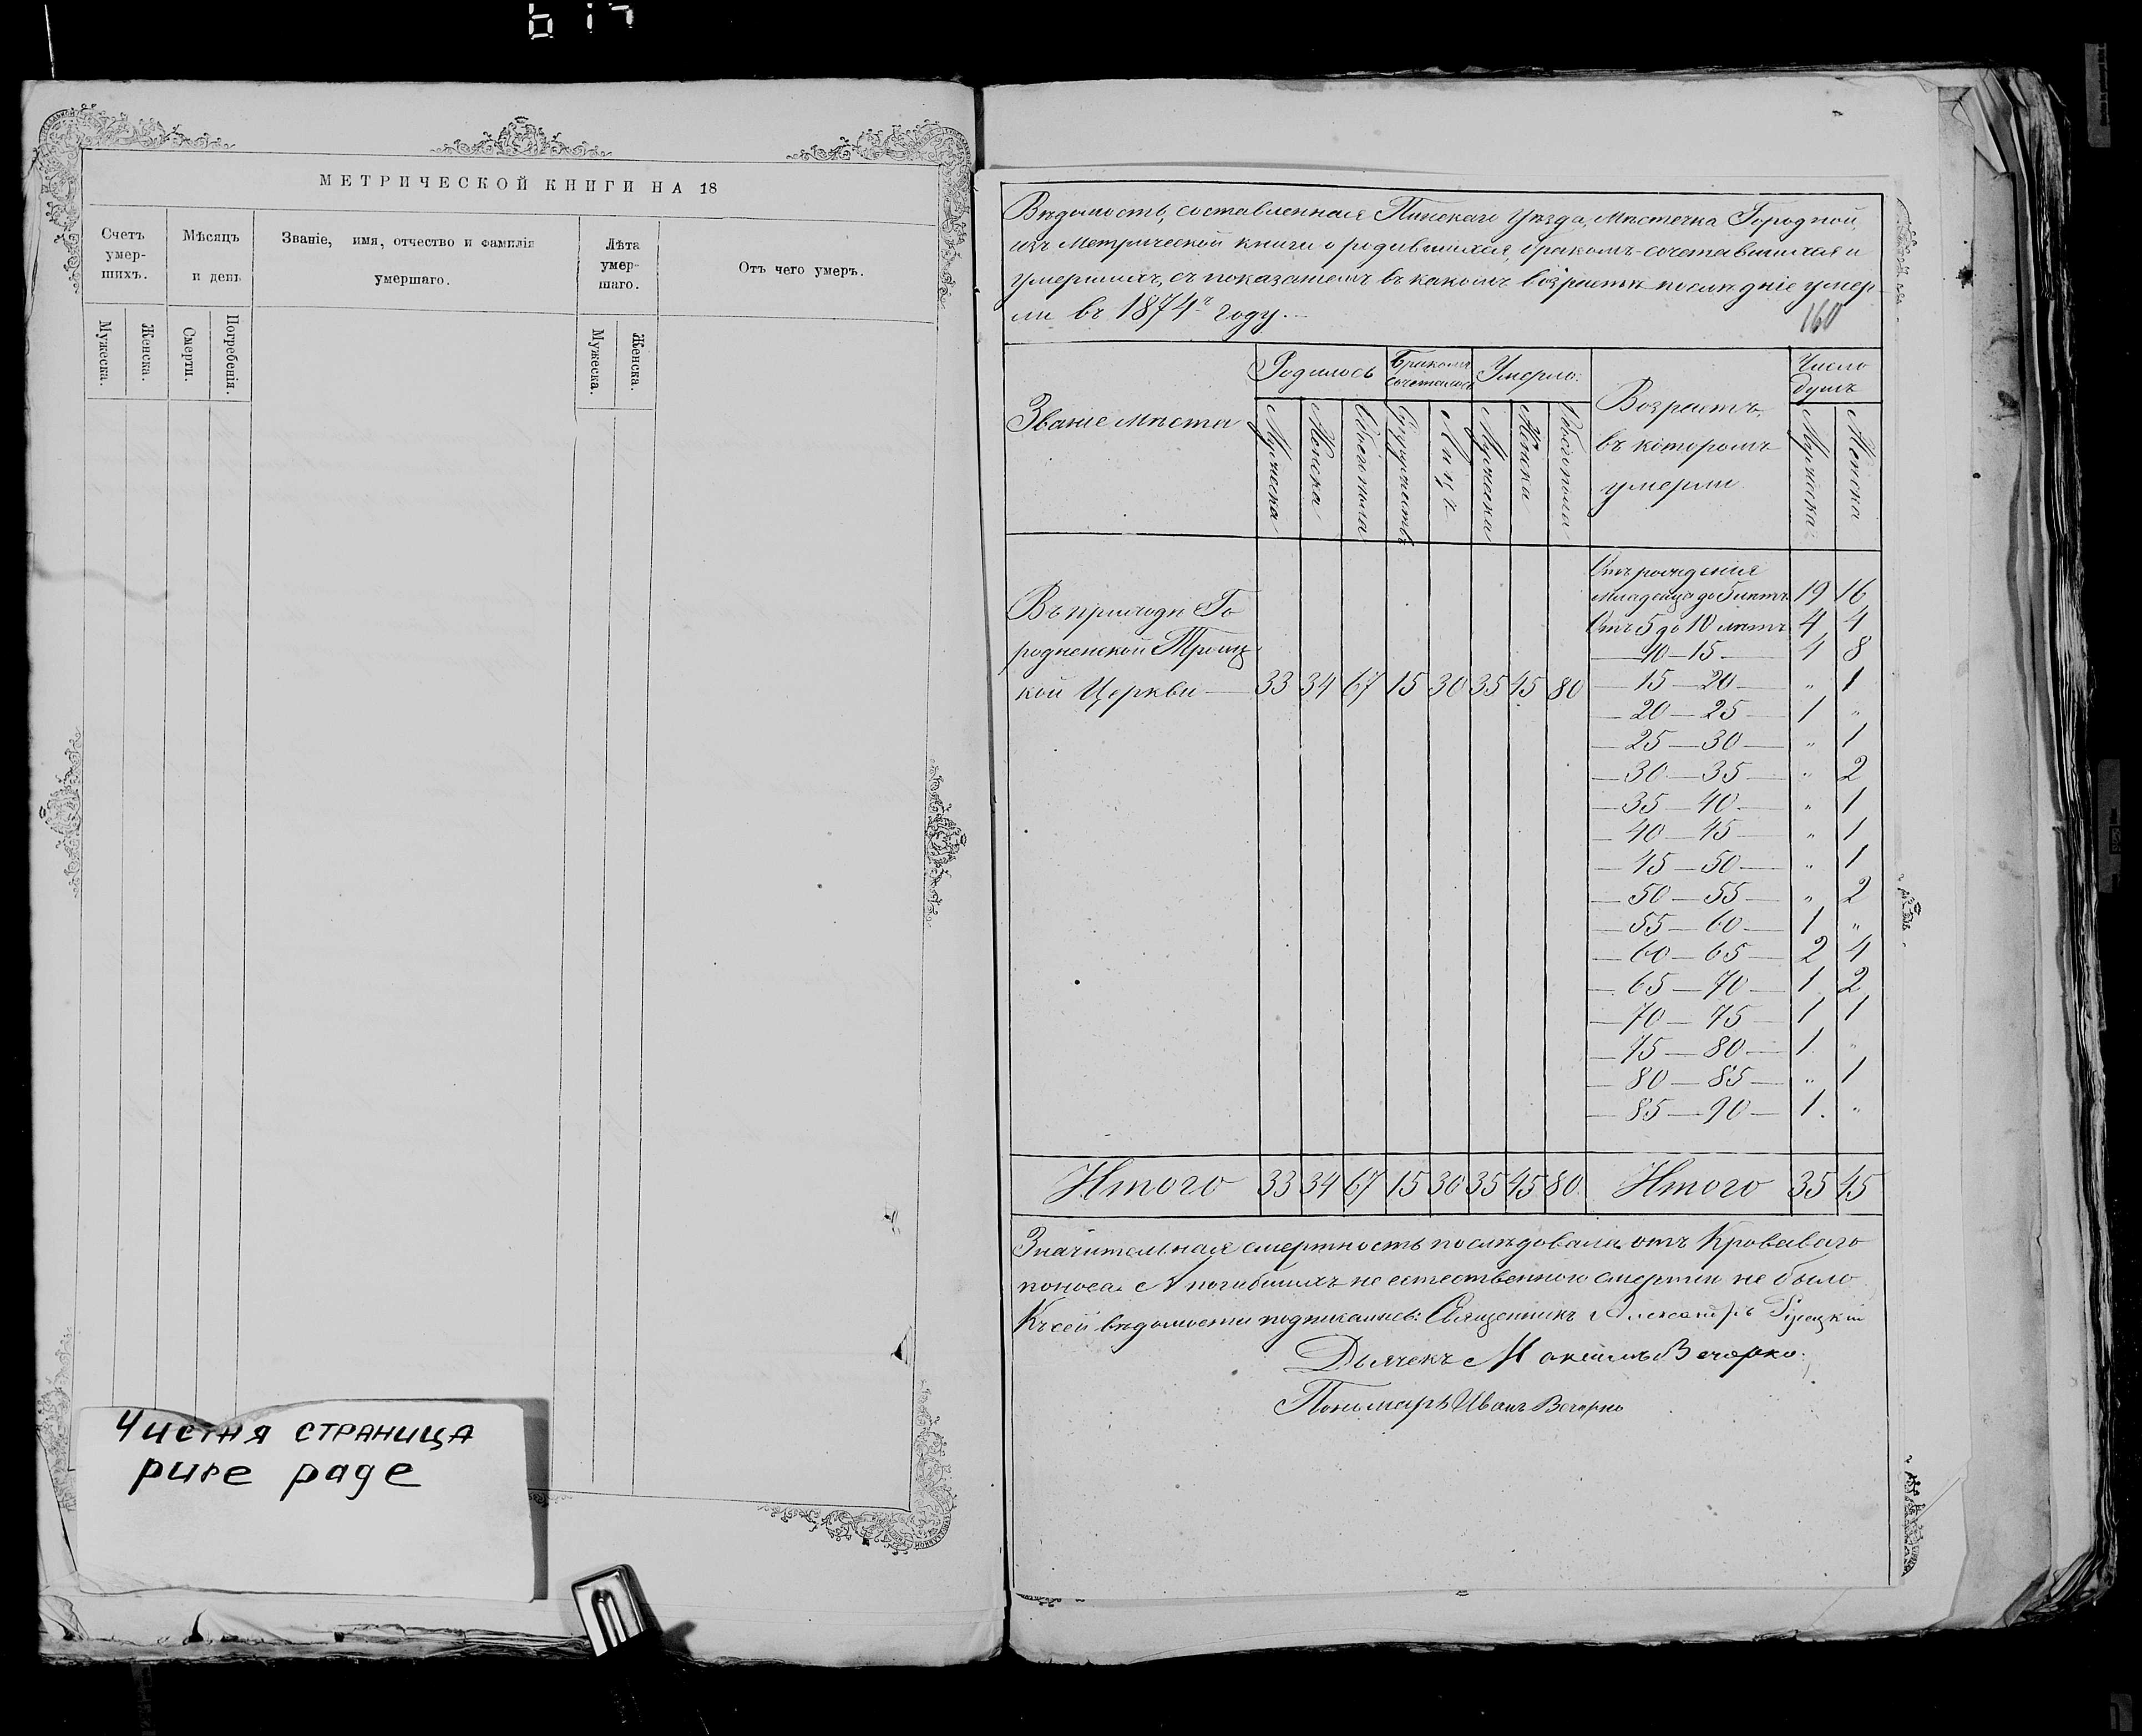 МЕТРИЧЕСКОЙ КНИГИ НА 18
Счетъ умер-шихъ.
Мѣсяцъ и день
Званіе, имя, отчество и фамилія умершаго.
Лѣта умер-шаго.
Отъ чего умеръ.
Мужеска.
Женска.
Смерти.
Погребенія.
Мужеска.
Женска.
Чистая страница
pure page
Вѣдомость, составленная Пинскаго Уѣзда, Мѣстечка Городной,
изъ Метрической книги о родившихся, бракомъ сочетавшихся и
умершихъ, съ показаніемъ въ какомъ возрастѣ послѣдніе умер
ли въ 1874 году.
160
Званіе мѣста
Родилось
Бракомъ сочеталось
Умерло:
Возрастъ, въ которомъ умерли
Число душъ
Мужеска
Женска
Обоего пола
Супружествъ
Лицъ
Мужеска
Женска
Обоего пола
Мужеска
Женска
Въ приходѣ Го
родненской Троиц
кой Церкви — 33 34 67 15 30 35 45 80
Отъ рожденія
младенца до 5 лѣтъ 19 16
Отъ 5 до 10 лѣтъ 4 4
— 10 — 15 — 4 8
— 15 — 20 — " 1
— 20 — 25 — 1 "
— 25 — 30 — " 1
— 30 — 35 — " 2
— 35 — 40 — " 1
— 40 — 45 — " 1
— 45 — 50 — " 1
— 50 — 55 — " 2
— 55 — 60 — 1 "
— 60 — 65 — 2 4
— 65 — 70 — 1 2
— 70 — 75 — 1 1
— 75 — 80 — 1 "
— 80 — 85 — " 1
— 85 — 90 — 1 "
Итого 33 34 67 15 30 35 45 80 Итого 35 45
Значительная смертность послѣдовала отъ Кроваваго
поноса. А погибшихъ не естественною смертію не было
Къ сей вѣдомости подписались: Священникъ Александръ
Дьячекъ Максимъ Вечорко.
Пономарь Иванъ Вечорко